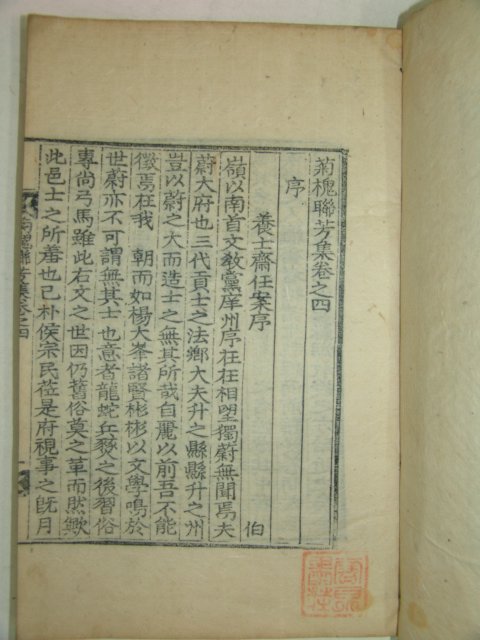 菊槐聯芳集卷之四
序
養士齋任案序
伯
嶺以南首文敎黨庠州序在在相望獨蔚無聞焉夫
蔚大府也三代貢士之法鄕大夫升之縣縣升之州
豈以蔚之大而造士之無其所哉自麗以前吾不能
徵焉在我 朝而如楊大峯諸賢彬彬以文學鳴於
世蔚亦不可謂無其士也意者龍蛇兵燹之後習俗
專尙弓馬雖此右文之世因仍舊俗莫之革而然歟
此邑士之所羞也已朴侯宗民莅是府視事之旣月